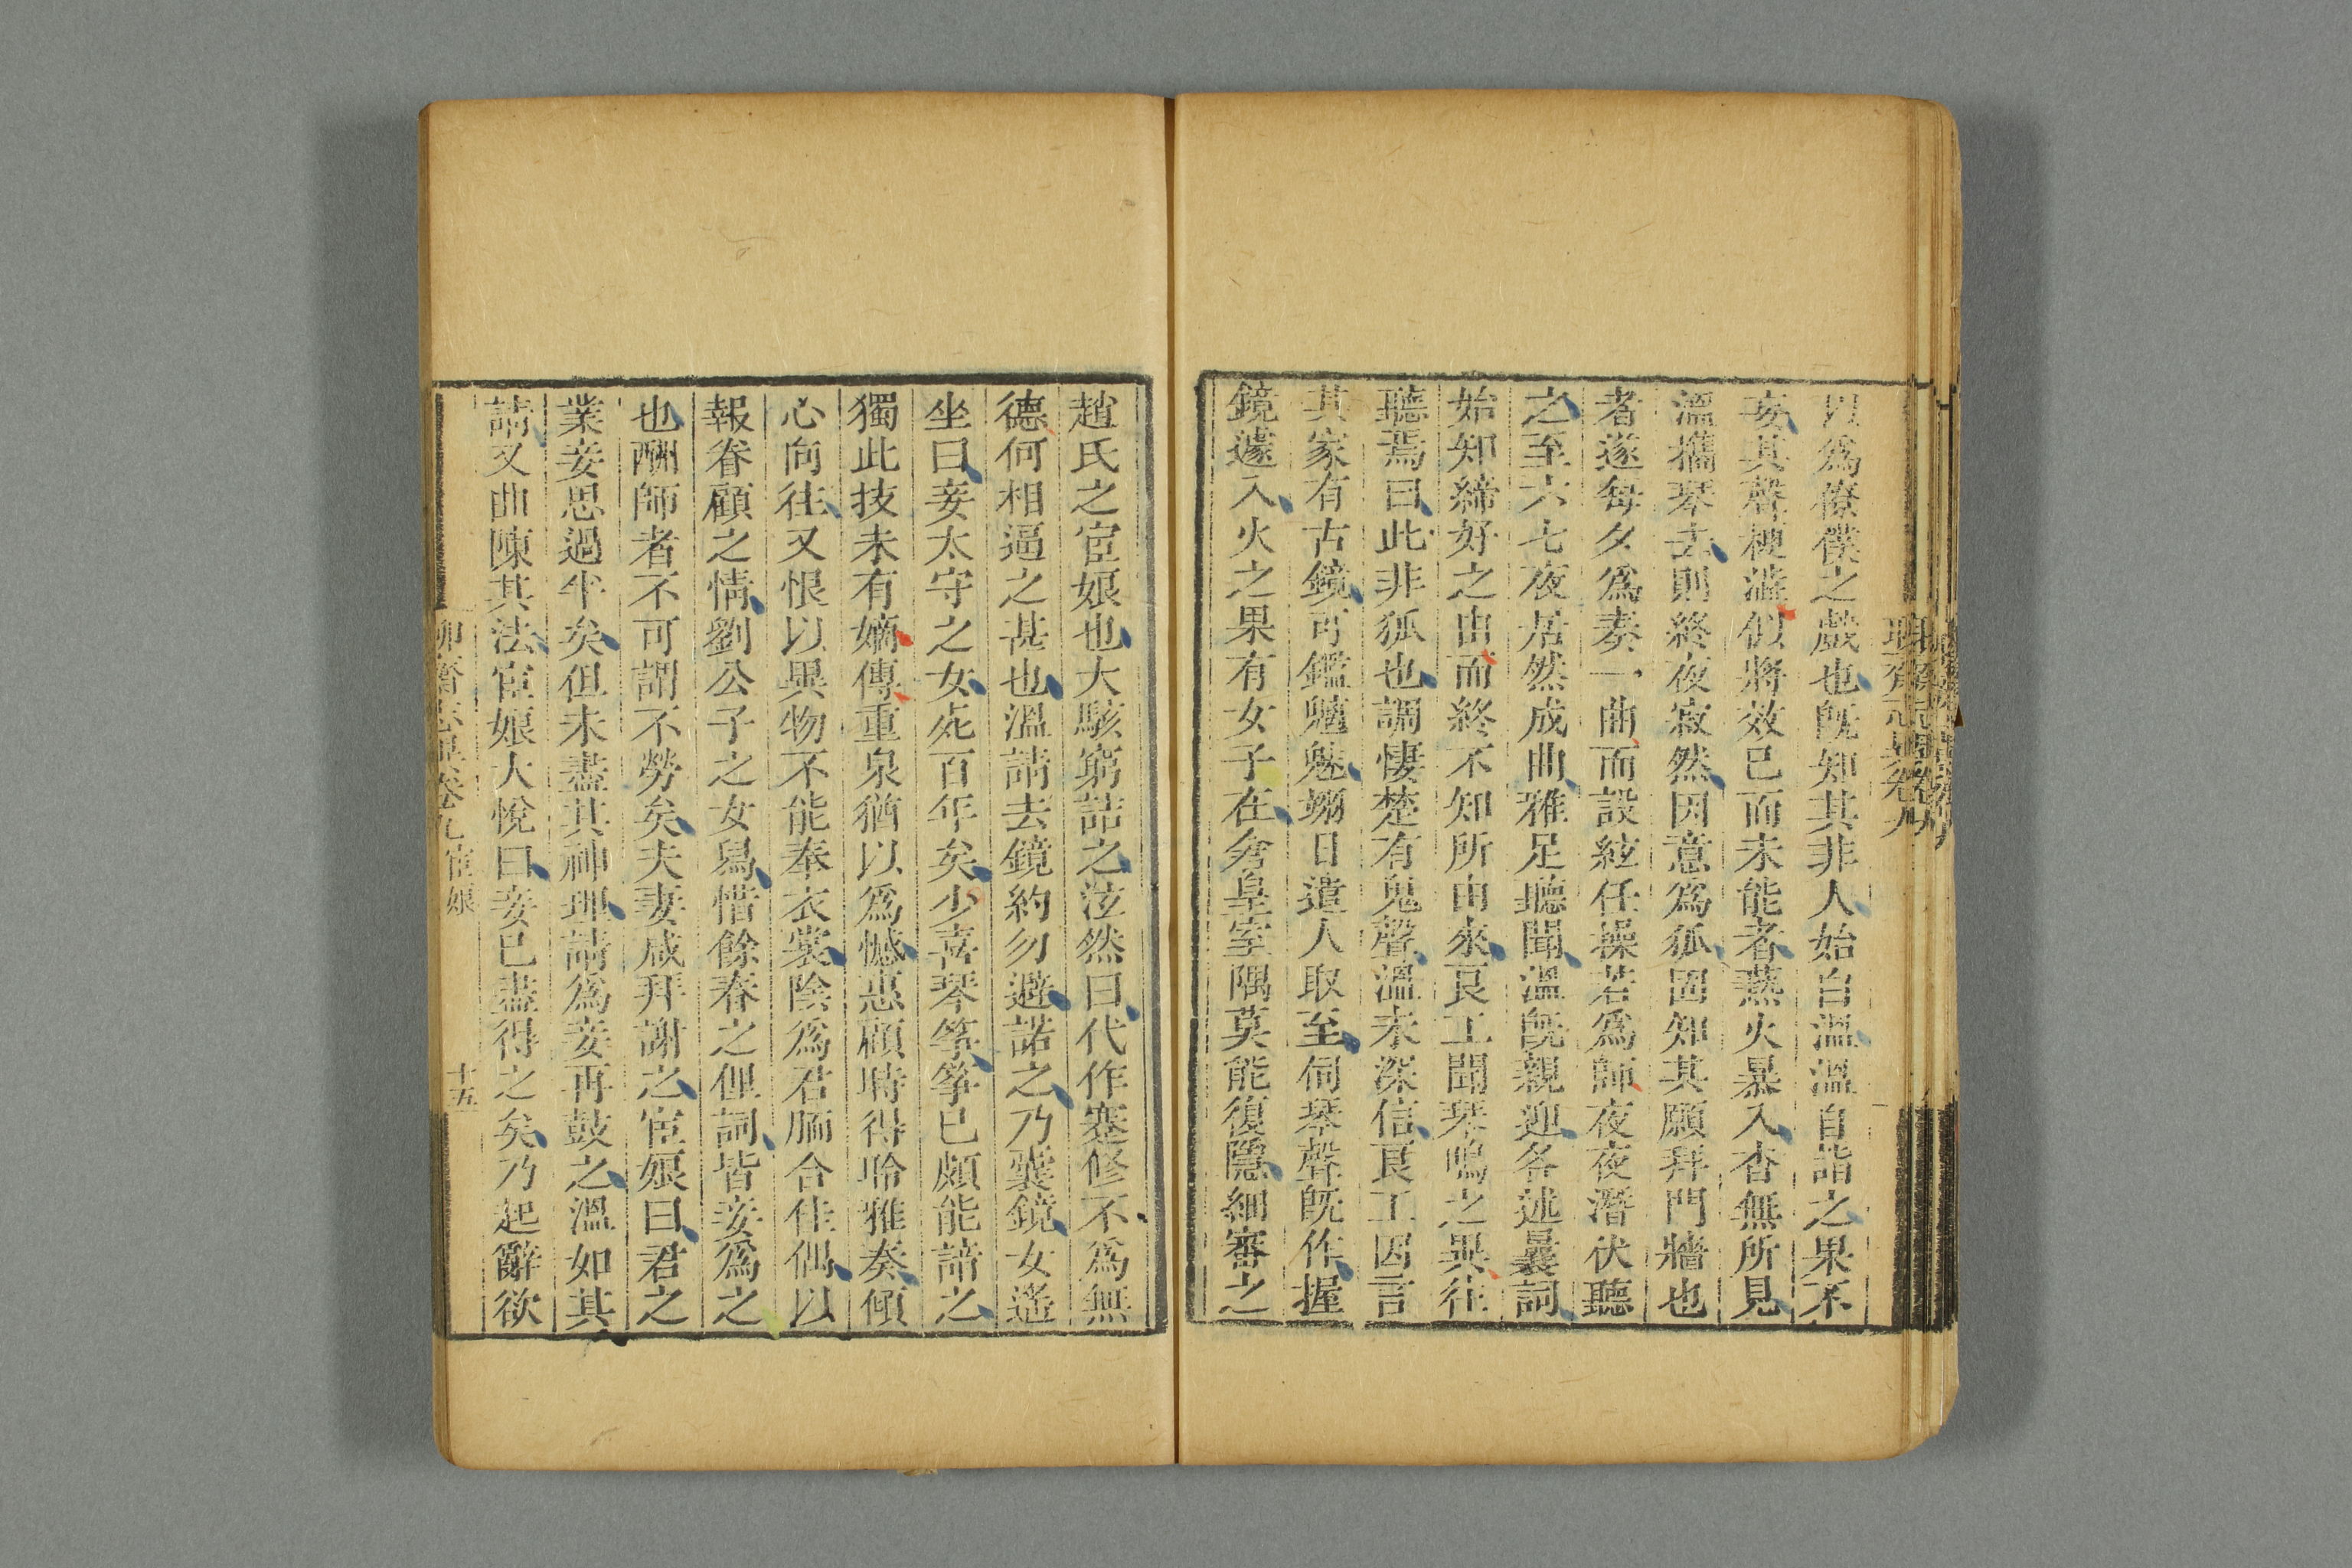 以爲僚僕之戲也旣知其非人始白溫溫自詣之果不
妄其聲梗澁似將效已而未能者爇火暴入杳無所見
溫攜琴去則終夜寂然因意爲狐固知其願拜門牆也
者遂每夕爲奏一曲而設絃任操若爲師夜夜潛伏聽
之至六七夜居然成曲雅足聽聞溫旣親迎各述曩詞
始知締好之由而終不知所由來良工聞琴鳴之異往
聽焉曰此非狐也調悽楚有鬼聲溫未深信良工因言
其家有古鏡可鑑魑魅翊日遣人取至伺琴聲旣作握
鏡遽入火之果有女子在倉皇室隅莫能復隱細審之
聊齋志異卷九
趙氏之宦娘也大駭窮詰之泫然曰代作蹇修不爲無
德何相逼之甚也溫請去鏡約勿避諾之乃囊鏡女遙
坐曰妾太守之女死百年矣少喜琴筝筝已頗能諳之
獨此技未有嫡傳重泉猶以爲憾惠顧時得聆雅奏傾
心向往又恨以異物不能奉衣裳陰爲君脗合佳偶以
報眷顧之情劉公子之女舄惜餘春之俚詞皆妾爲之
也酬師者不可謂不勞矣夫妻咸拜謝之宦娘曰君之
業妾思過半矣但未盡其神理請爲妾再鼓之溫如其
請又曲陳其法宦娘大悅曰妾已盡得之矣乃起辭欲
聊齋志異卷九 宦娘 十五